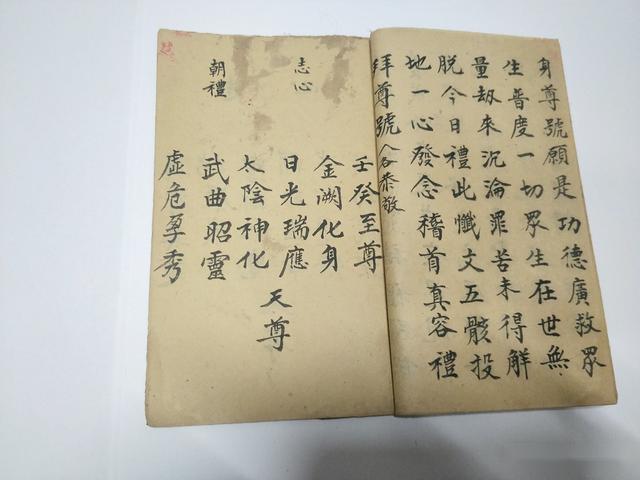 身尊號願是功德廣救眾
生普度一切眾生在世無
量劫來沉淪罪苦未得解
脱今日禮此懺文五骸投
地一心發念稽首真容禮
拜尊號 人各恭敬
壬癸至尊
金闕化身
志心
日光瑞應
天尊
太陰神化
朝禮
武曲昭靈
虛危孕秀